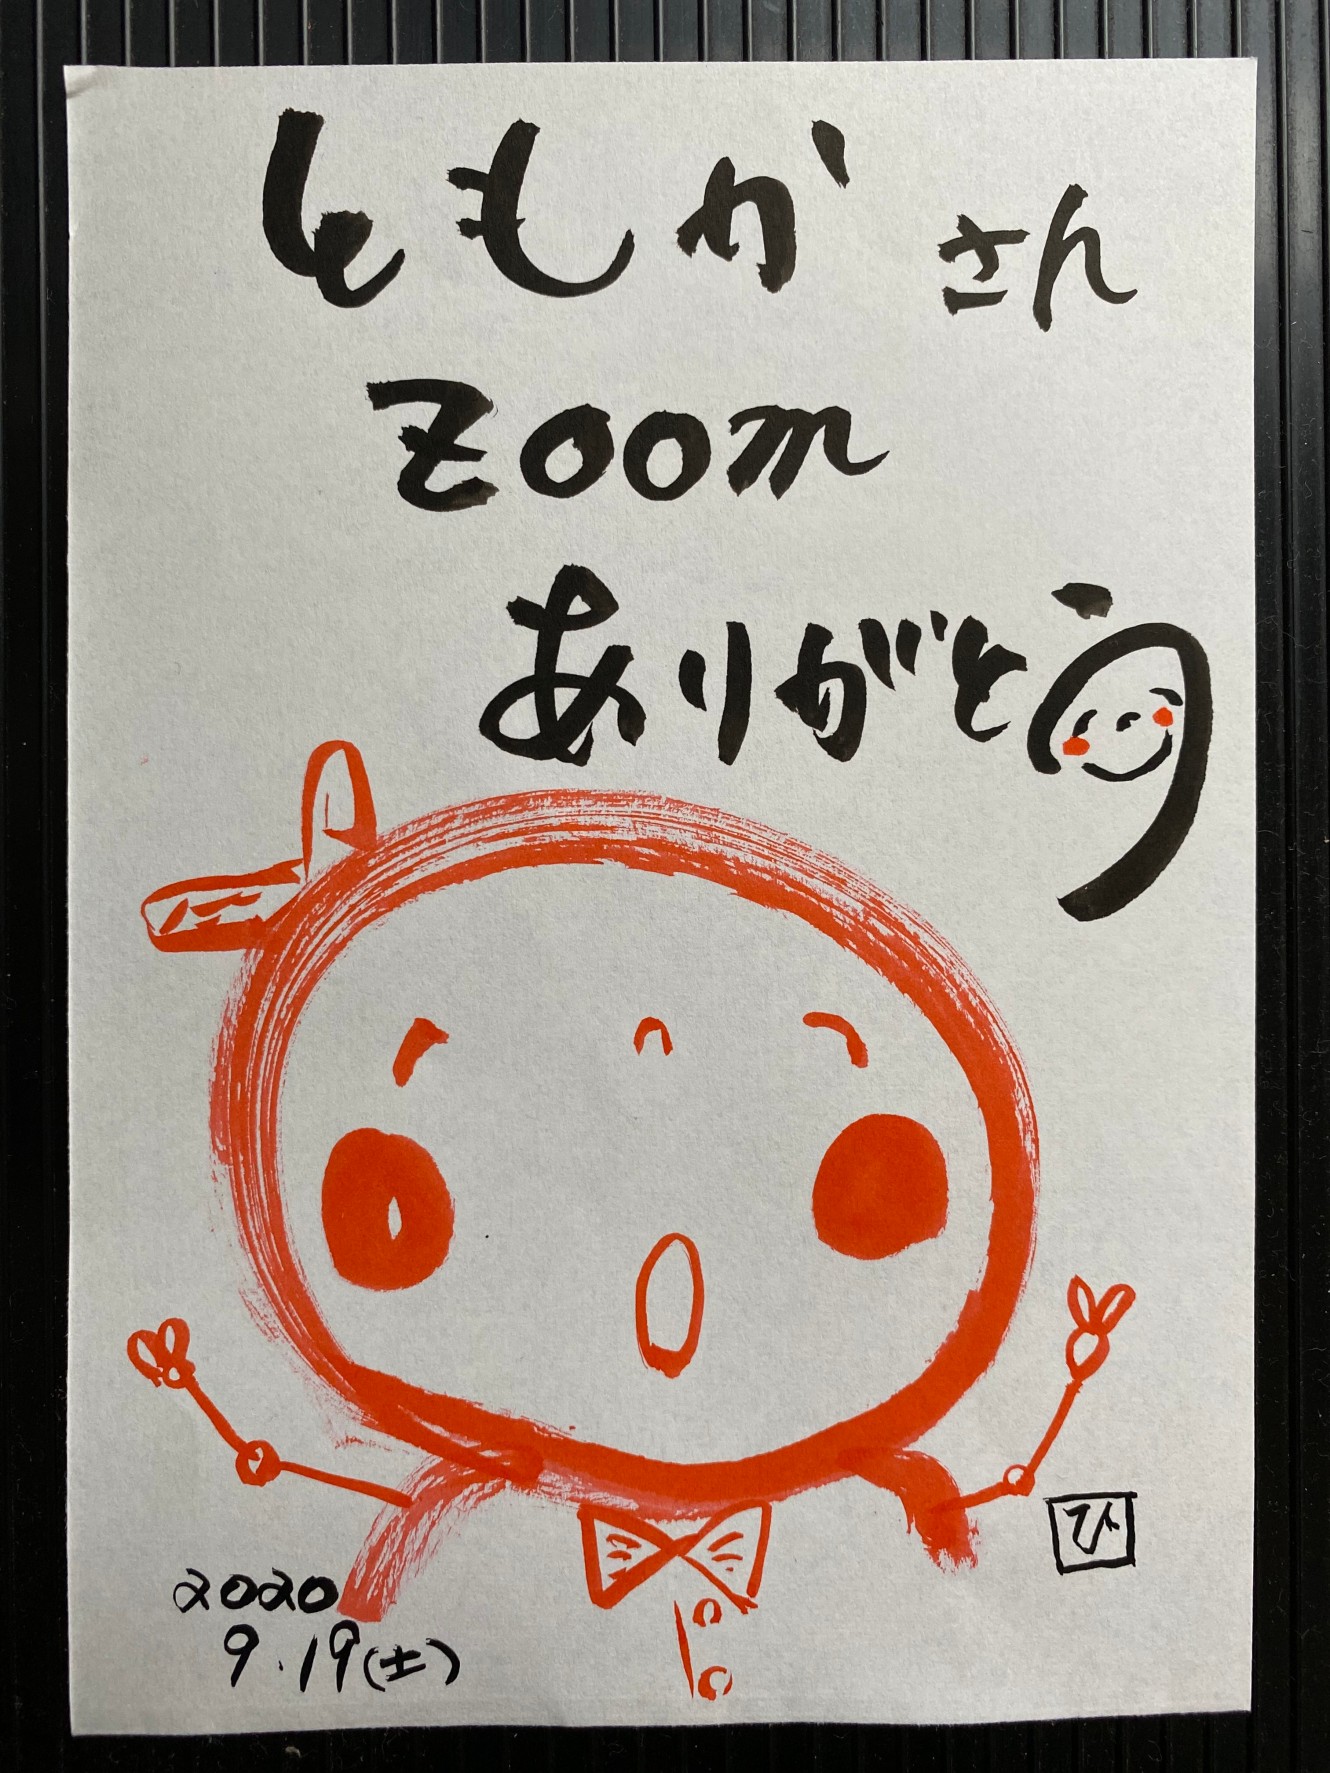 ともかさん
zoom
ありがとう
ひ
2020
9.19(土)